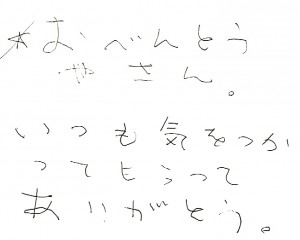 おべんとう
やさん。
いつも気をつか
ってもらって
ありがとう。